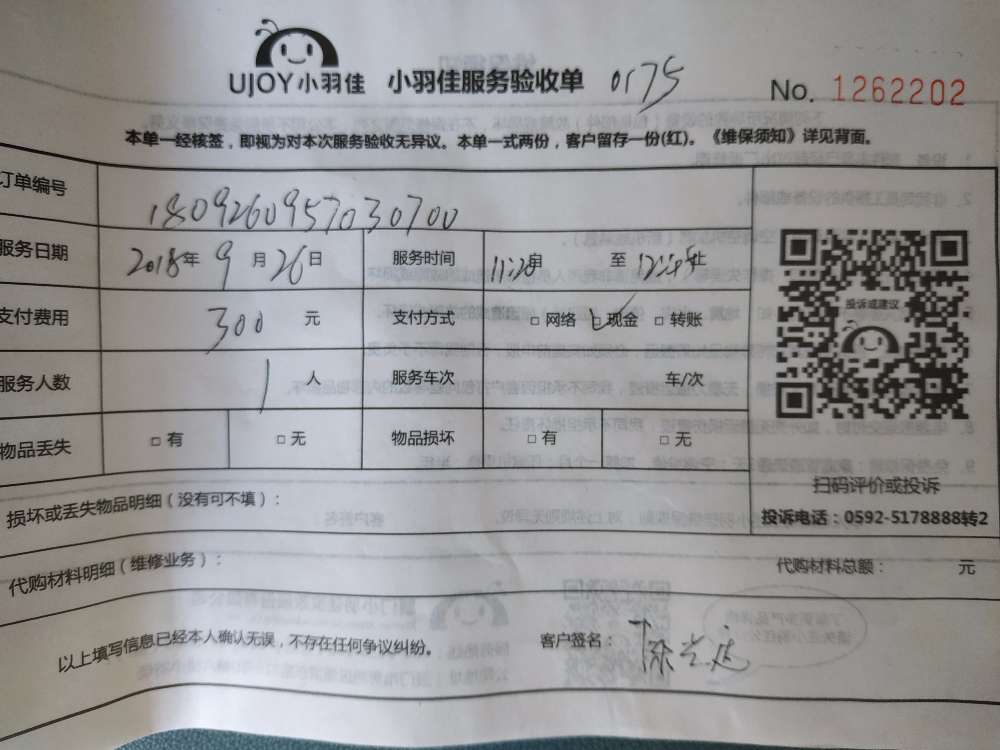 UJOY小羽佳 小羽佳服务验收单 0175 No. 1262202
本单一经核签，即视为对本次服务验收无异议。本单一式两份，客户留存一份(红)。《维保须知》详见背面。
订单编号 1809260957030700
服务日期 2018年 9 月 26日 服务时间 11:20由 至 12:45止
支付费用 300 元 支付方式 □ 网络 □ 现金 □ 转账
投诉或建议
服务人数 1 人 服务车次 车/次
物品丢失 □ 有 □ 无 物品损坏 □ 有 □ 无
扫码评价或投诉
损坏或丢失物品明细（没有可不填）：
投诉电话：0592-5178888转2
代购材料明细（维修业务）： 代购材料总额： 元
以上填写信息已经本人确认无误，不存在任何争议纠纷。 客户签名：